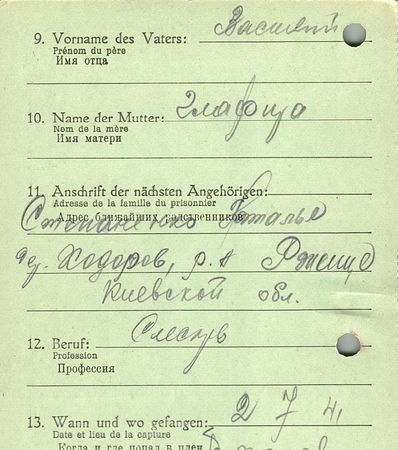 9. Vorname des Vaters: Василий
Prénom du père
Имя отца
10. Name der Mutter: Глафира
Nom de la mère
Имя матери
11. Anschrift der nächsten Angehörigen:
Adresse de la famille du prisonnier
Адрес ближайших родственников
Степаненко Наталье
Ходоров, р. Ржище
Киевской обл.
12. Beruf: Слесарь
Profession
Профессия
13. Wann und wo gefangen: 2 7 41
Date et lieu de la capture
Когда и где попал в плен